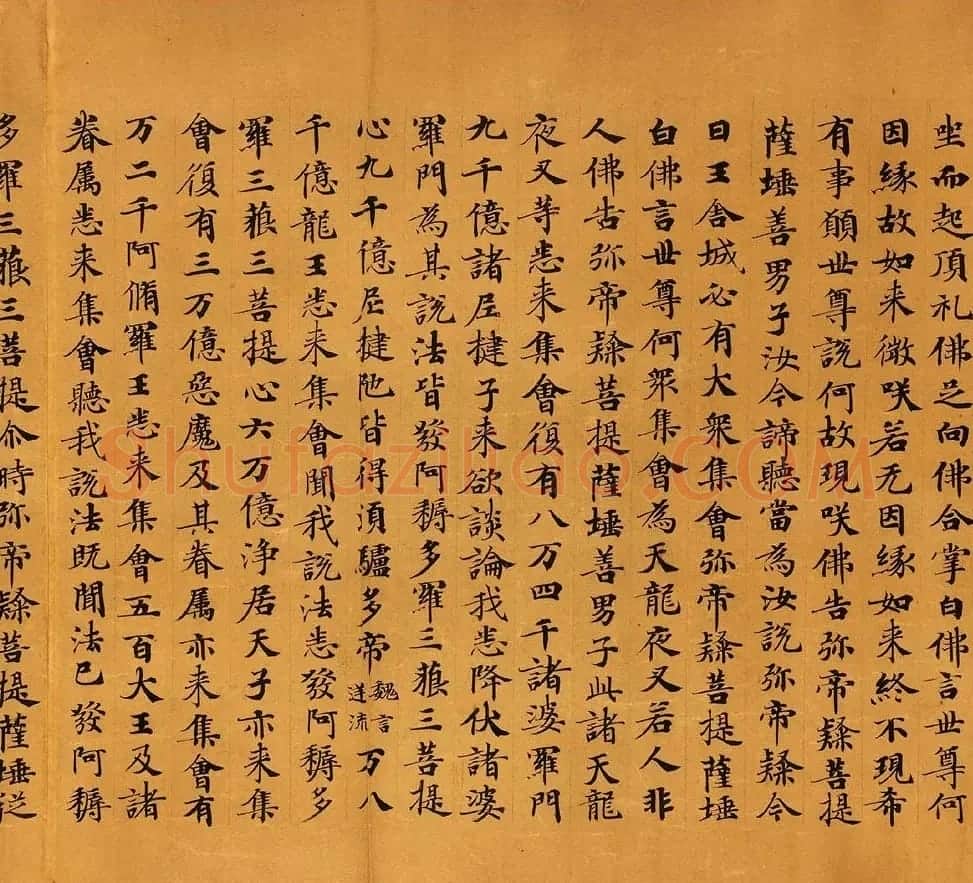 坐而起頂礼佛足向佛合掌白佛言世尊何
因緣故如来微咲若无因緣如来終不現希
有事願世尊說何故現咲佛告弥帝𨽻菩提
薩埵善男子汝今諦聽當為汝說弥帝𨽻今
日王舍城必有大衆集會弥帝𨽻菩提薩埵
白佛言世尊何衆集會為天龍夜叉若人非
人佛告弥帝𨽻菩提薩埵善男子此諸天龍
夜叉等悉来集會復有八万四千諸婆羅門
九千億諸尼揵子来欲談論我悉降伏諸婆
羅門為其說法皆發阿耨多羅三藐三菩提
心九千億尼揵陁皆得湏驢多帝魏言逆流万八
千億龍王悉来集會聞我說法悉發阿耨多
羅三藐三菩提心六万億淨居天子亦来集
會復有三万億惡魔及其眷屬亦来集會有
万二千阿脩羅王悉来集會五百大王及諸
眷属悉来集會聽我說法既聞法已發阿耨
多羅三藐三菩提尒時弥帝𨽻菩提薩埵從
Shufaziliao.COM